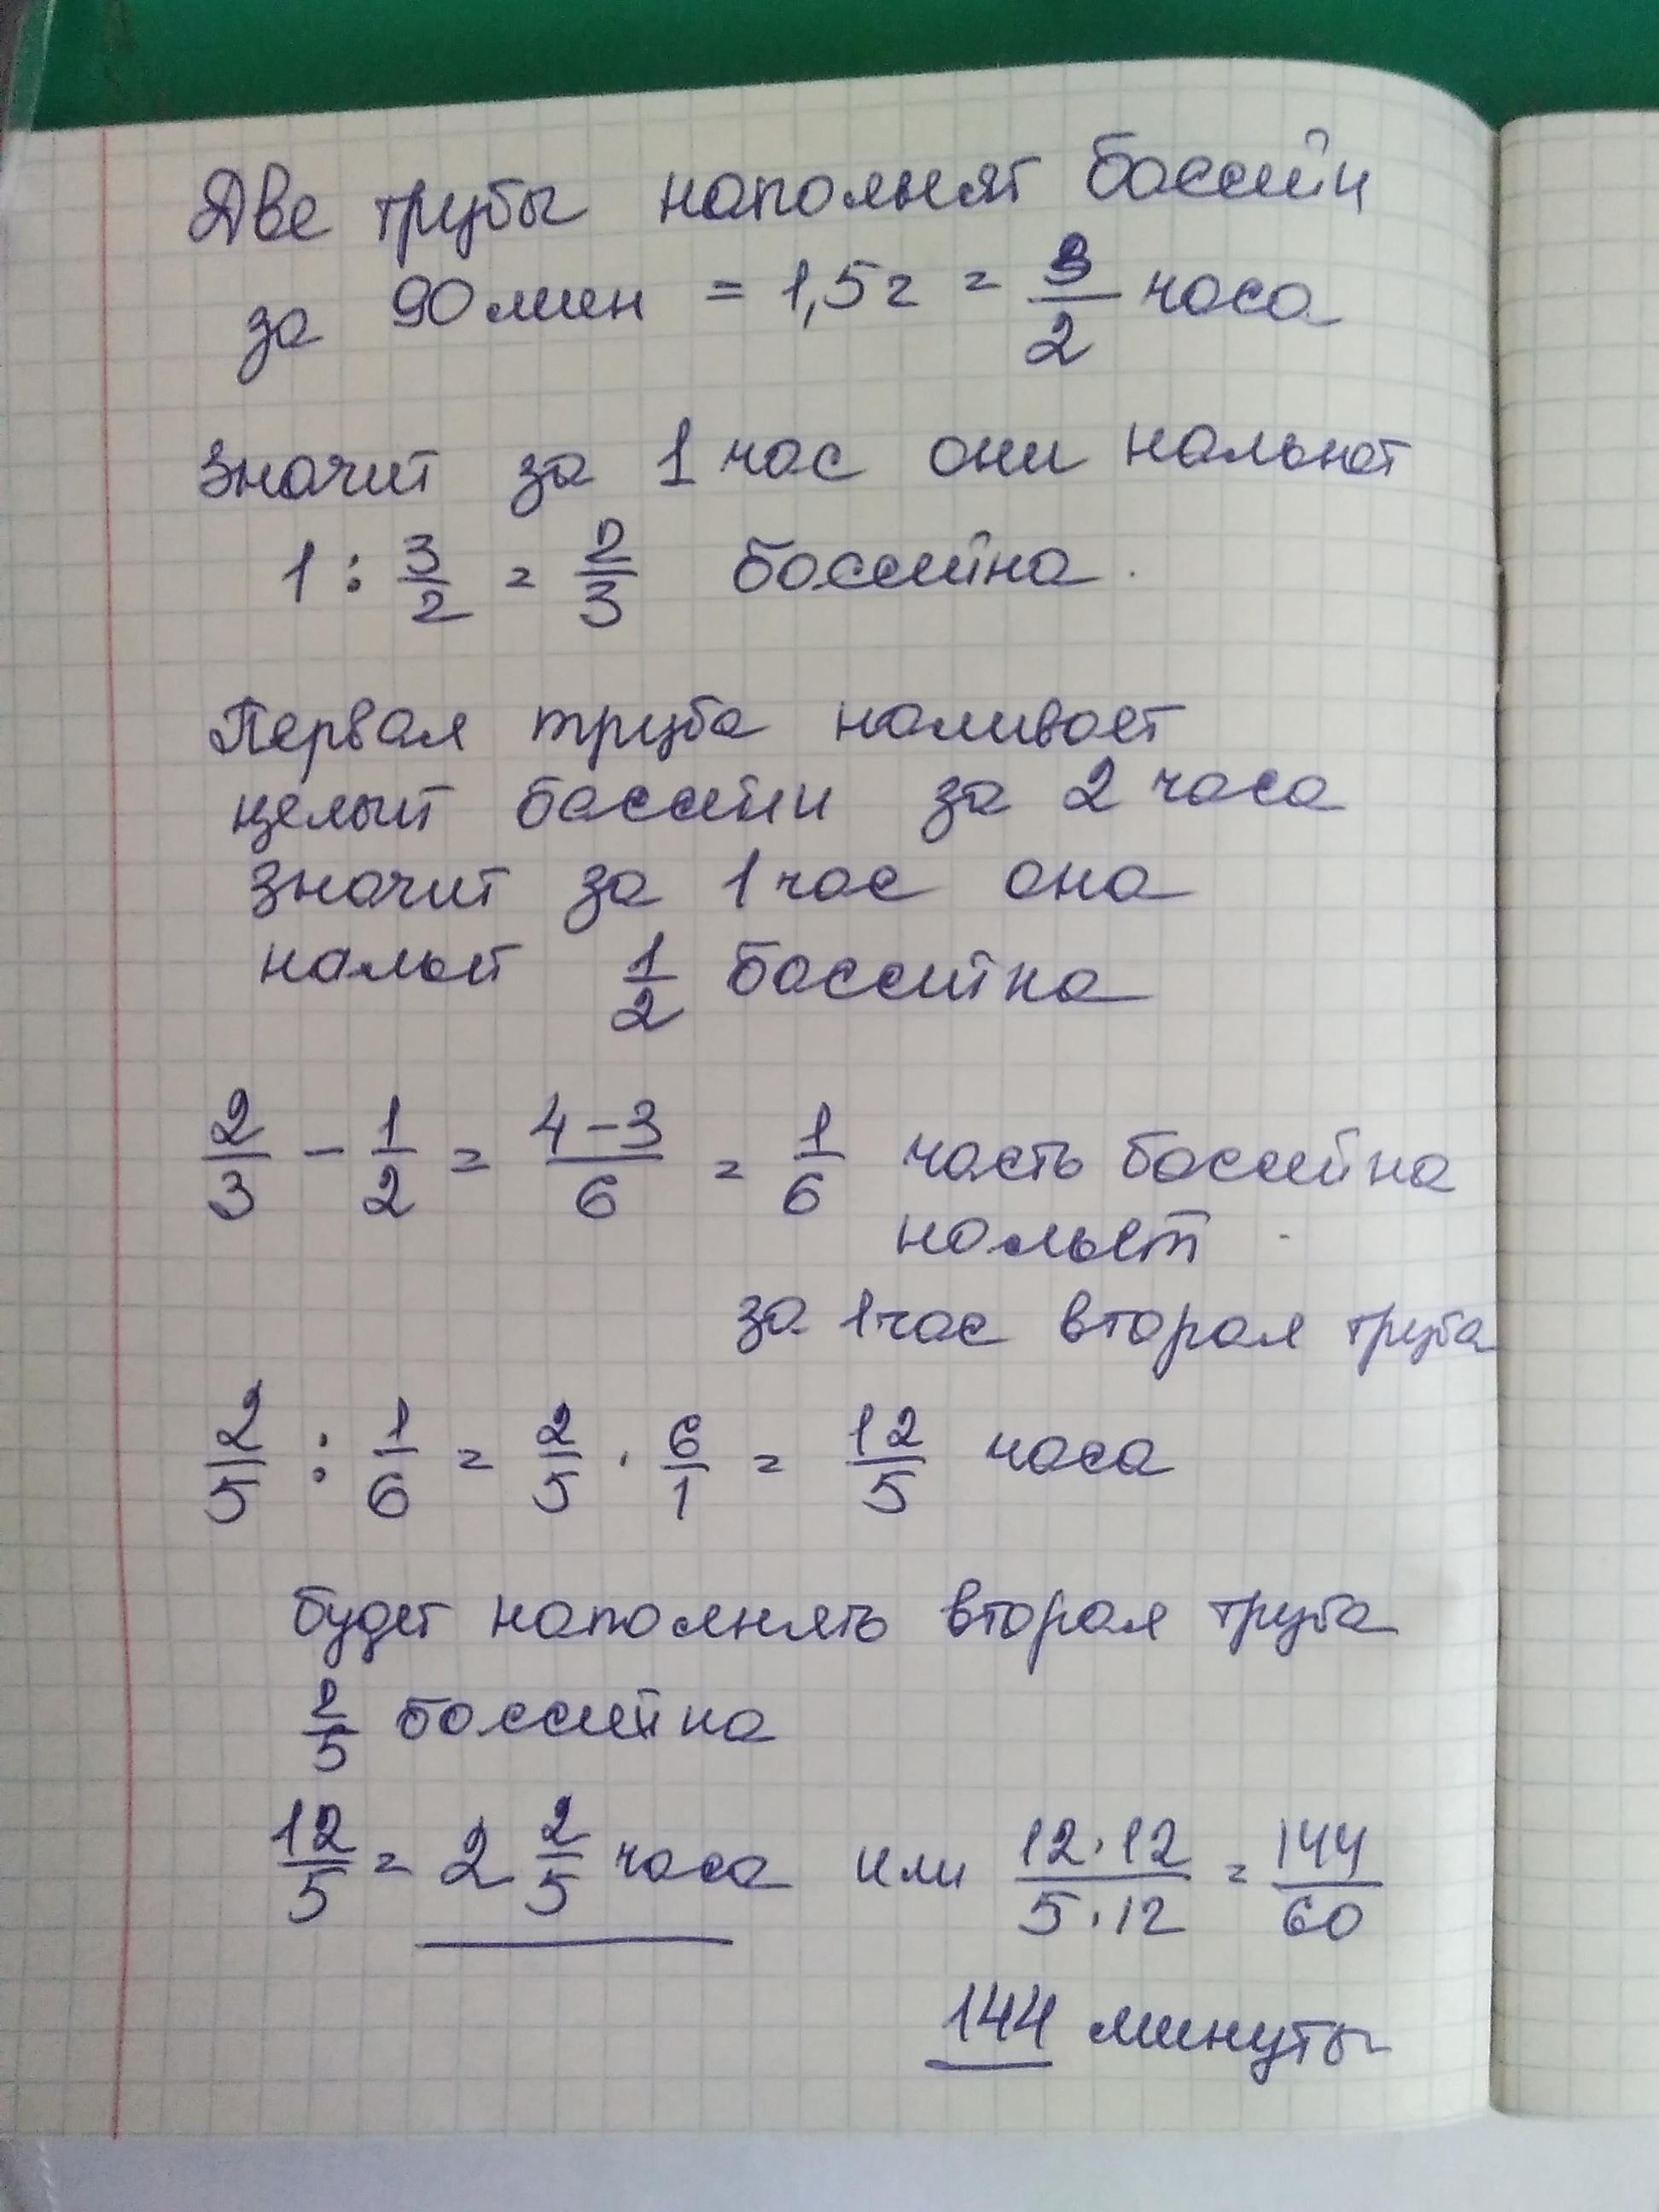 Две трубы наполнят бассейн
за 90 мин = 1,5 г = 3/2 часа
Значит за 1 час они нальют
1 : 3/2 = 2/3 бассейна.
Первая труба наливает
целый бассейн за 2 часа
значит за 1 час она
нальёт 1/2 бассейна
2/3 - 1/2 = 4-3/6 = 1/6 часть бассейна
нальёт
за 1 час вторая труба
2/5 : 1/6 = 2/5 · 6/1 = 12/5 часа
будет наполнять вторая труба
2/5 бассейна
12/5 = 2 2/5 часа или 12·12/5·12 = 144/60
144 минуты